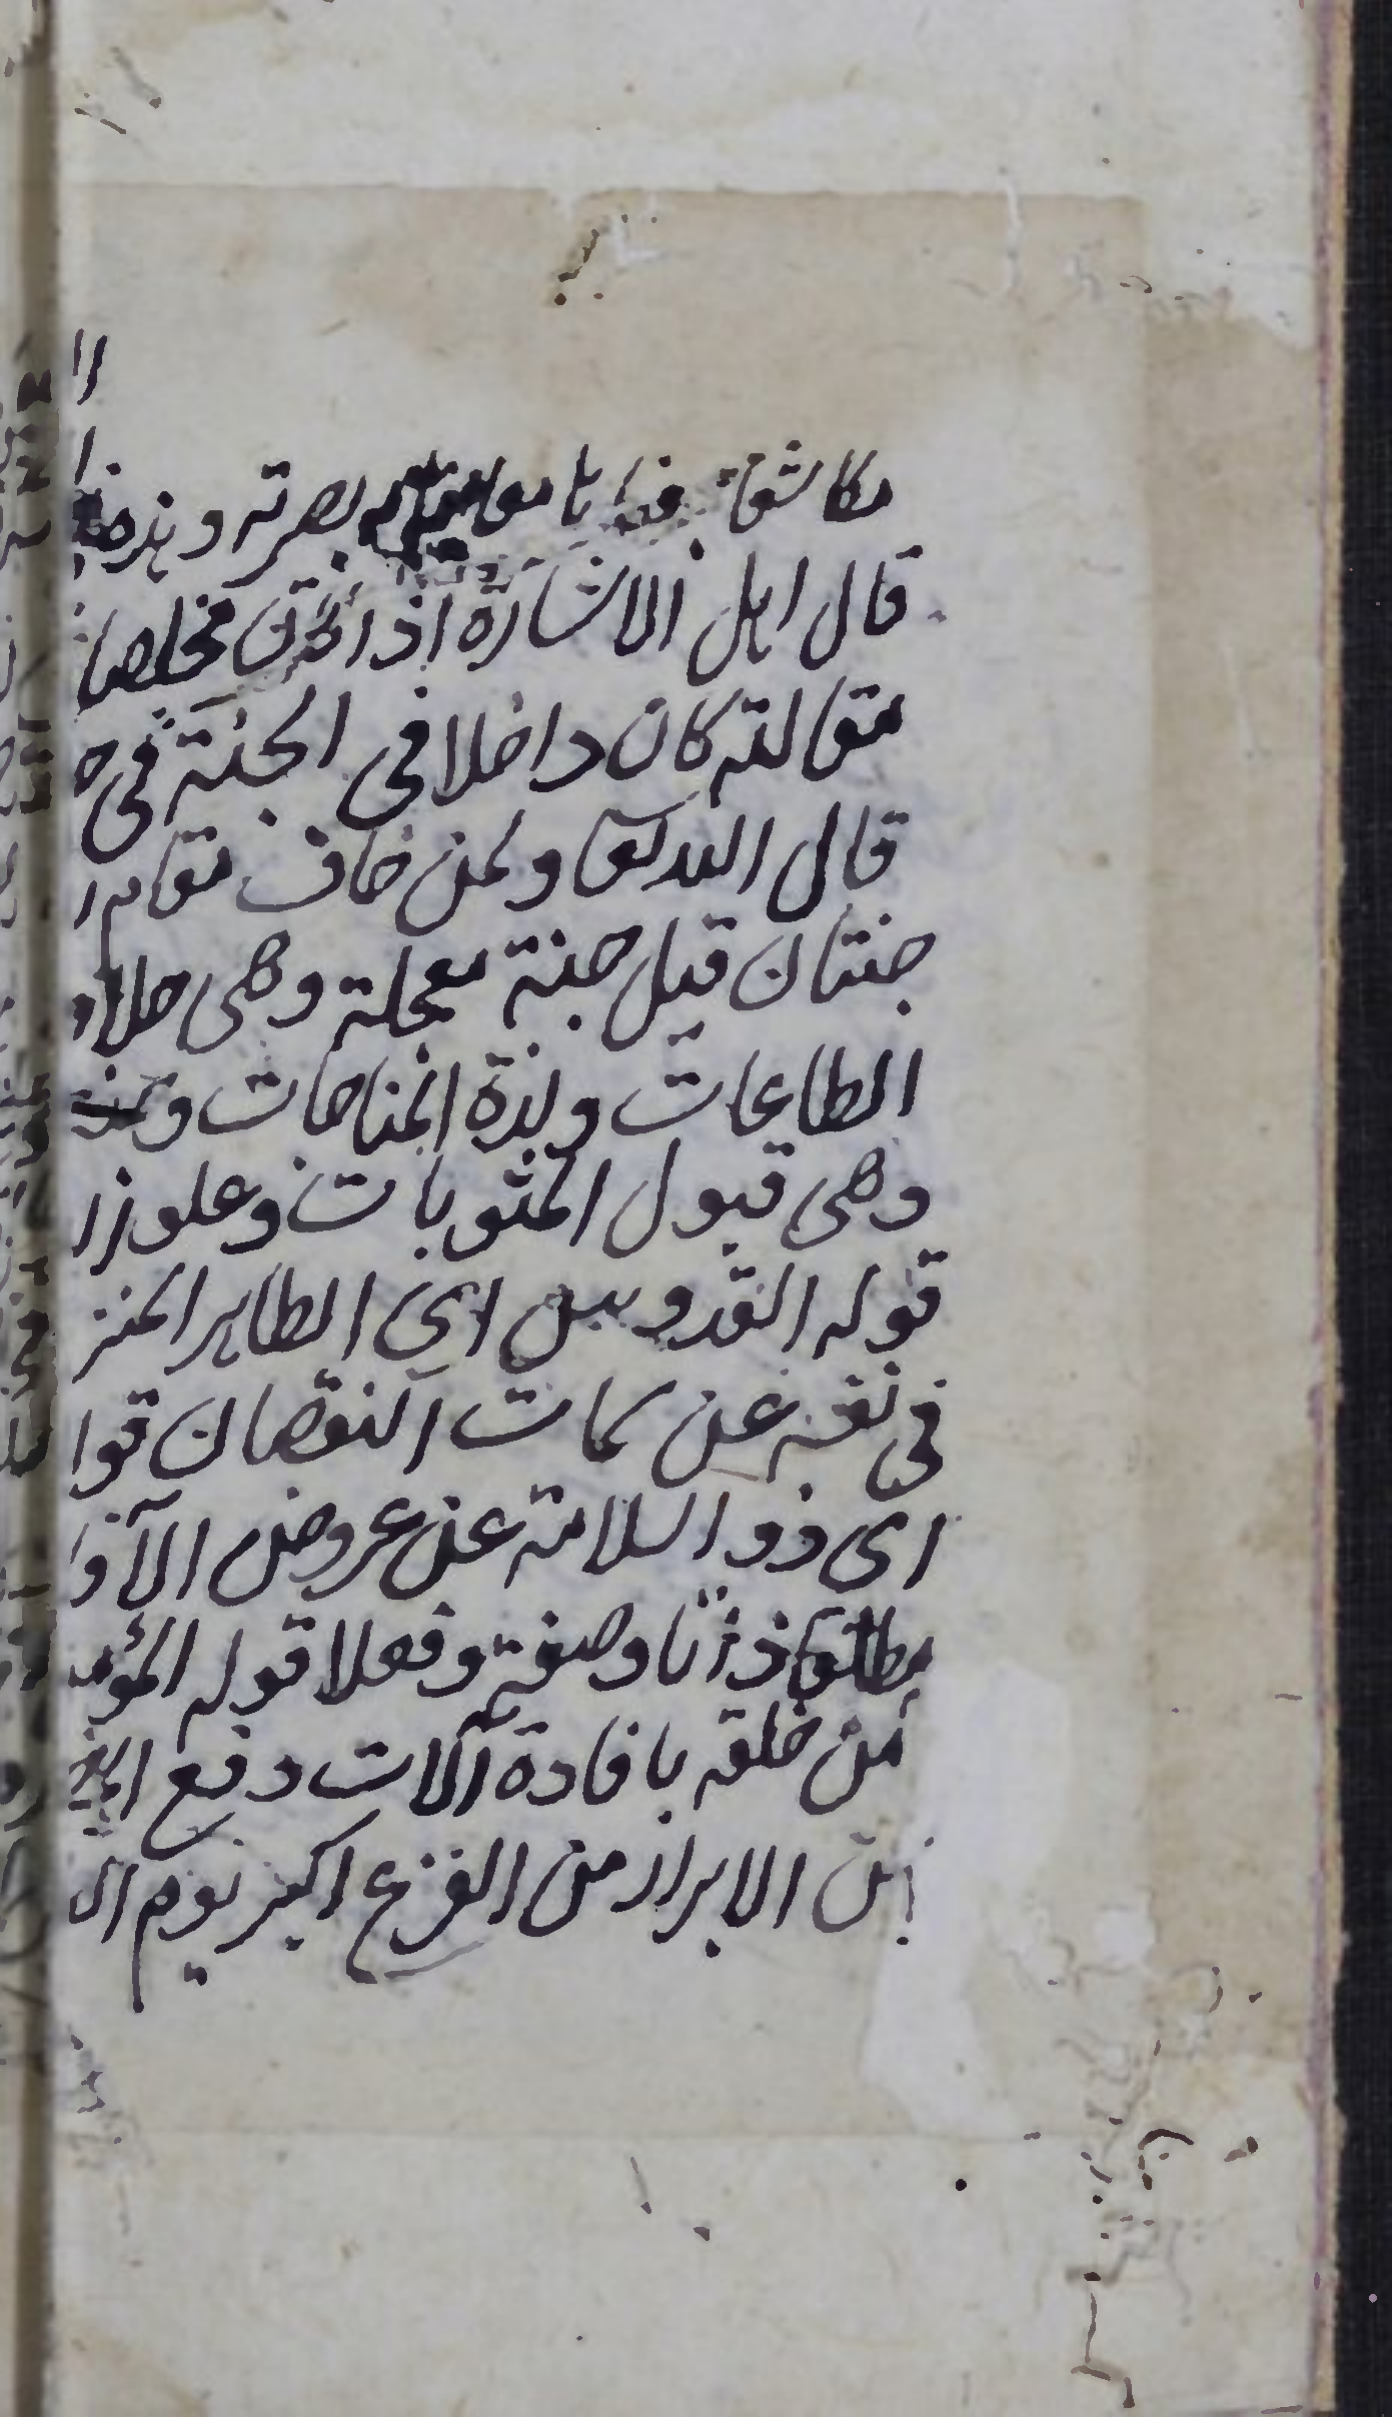 مكاشفا بصرته وهذه
قال اهل الاشارة اذا كان مخلصا
مقالته كان داخلا فى الجنة فى
قال الله تعالى ولمن خاف مقام
جنتان قيل جنة معجلة وهى حلاو
الطاعات ولذة المناجات و
وهى قبول المثوبات وعلو
قوله القدوس اى الطاهر المنز
فى نفسه عن سمات النقصان قو
اى ذو السلامة عن عروض الآفا
مطلقا ذاتا وصفة وفعلا قوله المؤ
من خلقه بافادة آلات دفع
الابرار من الفزع اكبر يوم